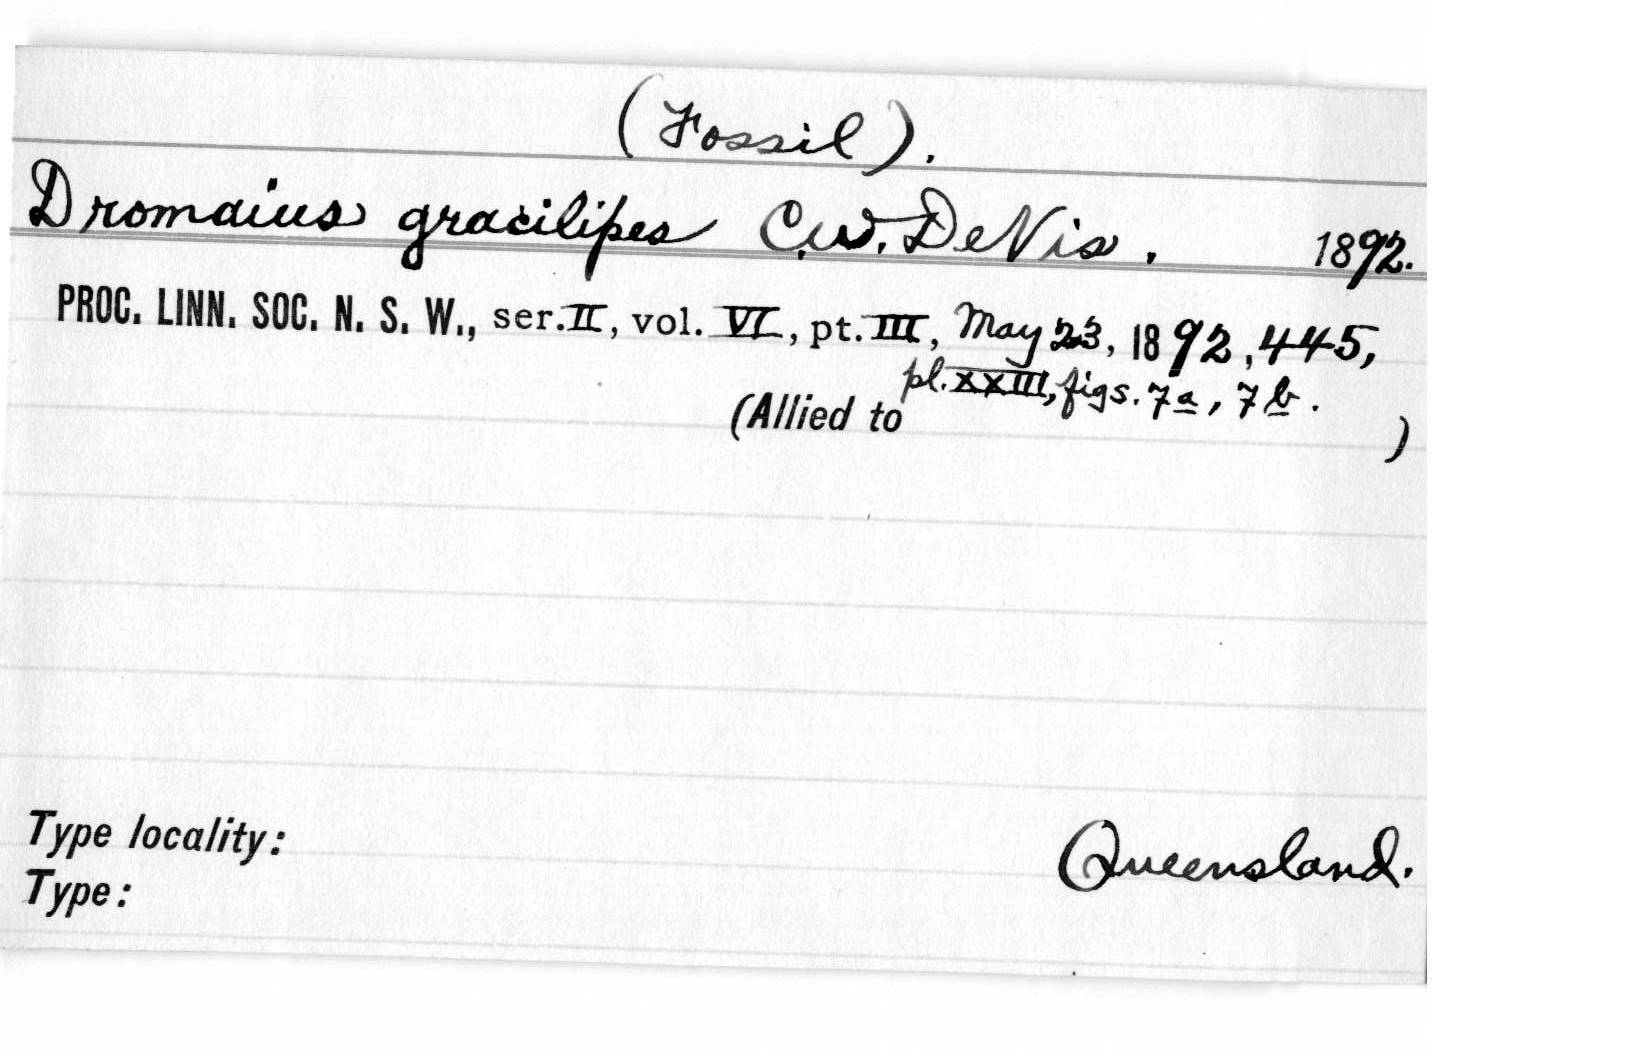 (Fossil).
Dromaius gracilipes C.W. DeVis. 1892.
PROC. LINN. SOC. N. S. W., ser. II, vol. VI, pt. III, May 23, 1892, 445,
pl. XXIII, figs. 7a, 7b.
(Allied to )
Type locality: Queensland.
Type: